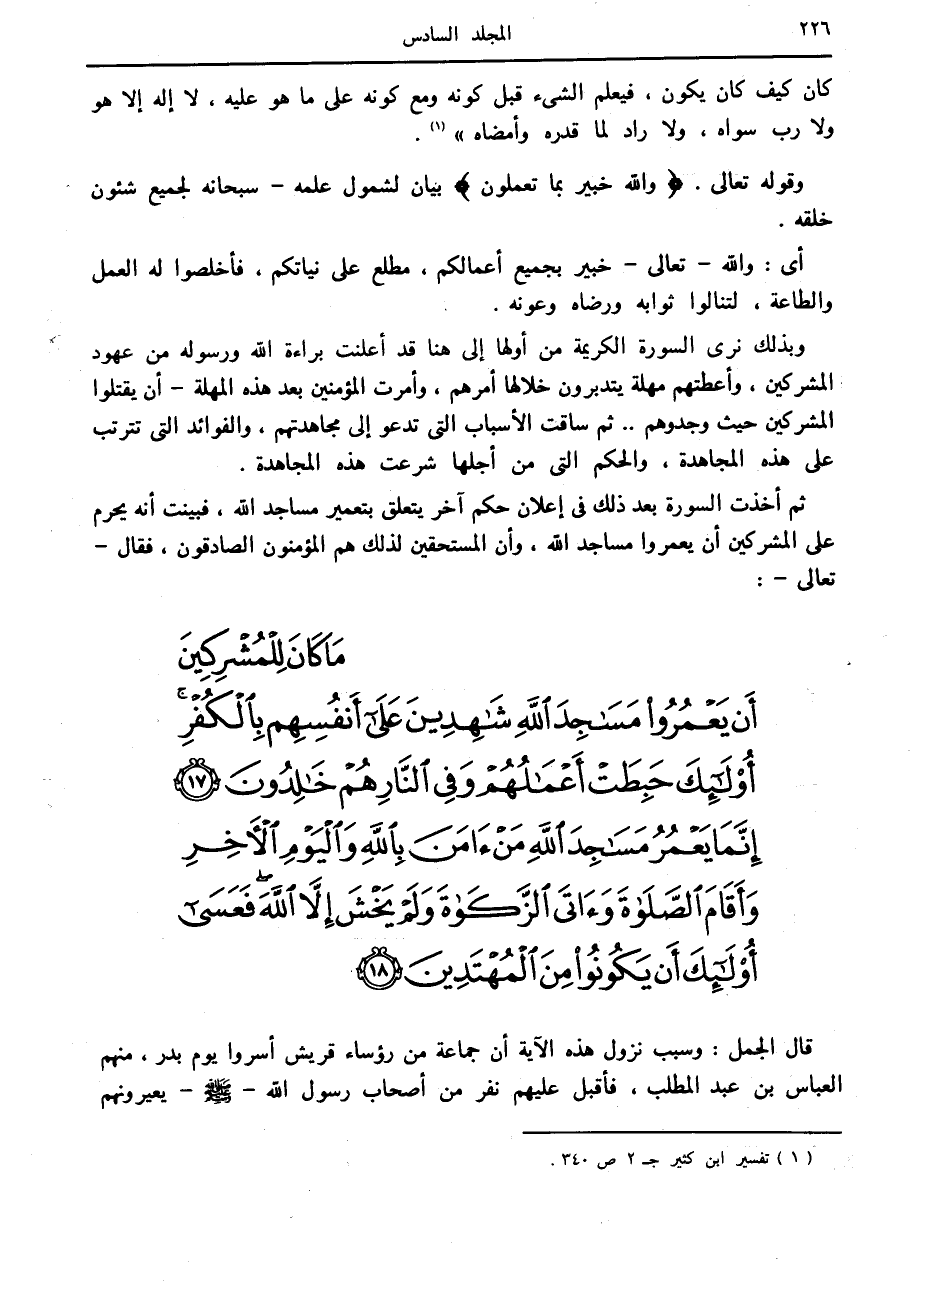 ٢٢٦
المجلد السادس
كان كيف كان يكون ، فيعلم الشىء قبل كونه ومع كونه على ما هو عليه ، لا إله إلا هو
ولا رب سواه ، ولا راد لما قدره وأمضاه » (١) .
وقوله تعالى . ﴿ والله خبير بما تعملون ﴾ بيان لشمول علمه – سبحانه لجميع شئون
خلقه .
أى : والله – تعالى – خبير بجميع أعمالكم ، مطلع على نياتكم ، فأخلصوا له العمل
والطاعة ، لتنالوا ثوابه ورضاه وعونه .
وبذلك نرى السورة الكريمة من أولها إلى هنا قد أعلنت براءة الله ورسوله من عهود
المشركين ، وأعطتهم مهلة يتدبرون خلالها أمرهم ، وأمرت المؤمنين بعد هذه المهلة – أن يقتلوا
المشركين حيث وجدوهم .. ثم ساقت الأسباب التى تدعو إلى مجاهدتهم ، والفوائد التى تترتب
على هذه المجاهدة ، والحكم التى من أجلها شرعت هذه المجاهدة .
ثم أخذت السورة بعد ذلك فى إعلان حكم آخر يتعلق بتعمير مساجد الله ، فبينت أنه يحرم
على المشركين أن يعمروا مساجد الله ، وأن المستحقين لذلك هم المؤمنون الصادقون ، فقال –
تعالى – :
مَا كَانَ لِلْمُشْرِكِينَ
أَن يَعْمُرُوا۟ مَسَـٰجِدَ ٱللَّهِ شَـٰهِدِينَ عَلَىٰٓ أَنفُسِهِم بِٱلْكُفْرِ ۚ
أُو۟لَـٰٓئِكَ حَبِطَتْ أَعْمَـٰلُهُمْ وَفِى ٱلنَّارِ هُمْ خَـٰلِدُونَ ١٧
إِنَّمَا يَعْمُرُ مَسَـٰجِدَ ٱللَّهِ مَنْ ءَامَنَ بِٱللَّهِ وَٱلْيَوْمِ ٱلْـَٔاخِرِ
وَأَقَامَ ٱلصَّلَوٰةَ وَءَاتَى ٱلزَّكَوٰةَ وَلَمْ يَخْشَ إِلَّا ٱللَّهَ ۖ فَعَسَىٰٓ
أُو۟لَـٰٓئِكَ أَن يَكُونُوا۟ مِنَ ٱلْمُهْتَدِينَ ١٨
قال الجمل : وسبب نزول هذه الآية أن جماعة من رؤساء قريش أسروا يوم بدر ، منهم
العباس بن عبد المطلب ، فأقبل عليهم نفر من أصحاب رسول الله – ﷺ – يعيرونهم
( ١ ) تفسير ابن كثير جـ ٢ ص ٣٤٠ .